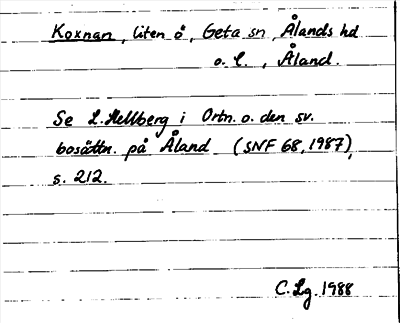 Koxnan, liten ö, Geta sn, Ålands hd
o. l., Åland.
Se L. Hellberg i Ortn. o. den sv.
bosättn. på Åland (SNF 68, 1987),
s. 212.
C. Lg. 1988